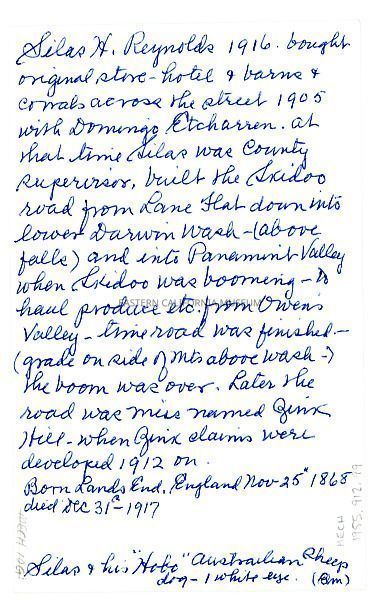 Silas H. Reynolds 1916. bought
original store - hotel & barns &
corrals across the street 1905
with Domingo Etcharren. at
that time Silas was County
supervisor, built the Skidoo
road from Lane Flat down into
lower Darwin Wash - (above
falls) and into Panamint Valley
when Skidoo was booming - to
haul produce etc. from Owens
EASTERN CALIFORNIA MUSEUM
Valley - time road was finished -
(grade on side of Mts above wash -)
the boom was over. Later the
road was miss named Zink
Hill - when Zink claims were
developed 1912 on.
Born Lands End, England Nov - 25" 1868
died Dec 31st - 1917
MECH
1955.912.99
Silas & his "Hobo" Australian Sheep
dog - 1 white eye.